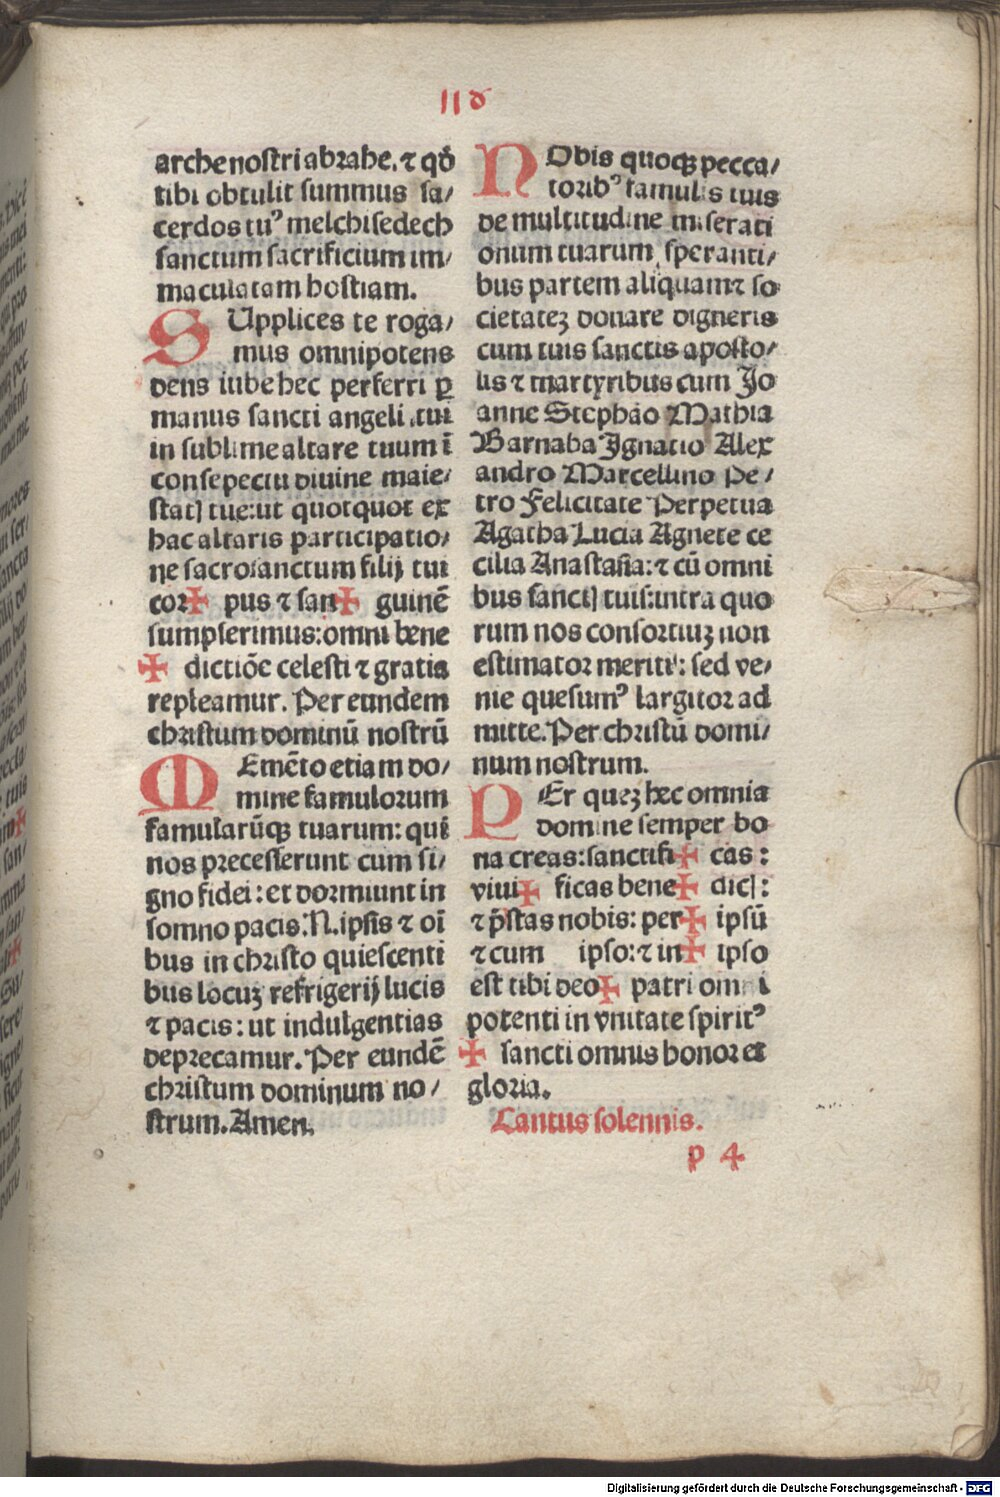 118
arche nostri abrahe. ⁊ qđ
tibi obtulit summus sa/
cerdos tuꝰ melchisedech
sanctum sacrificium im/
maculatam hostiam.
SUpplices te roga/
mus omnipotens
deus iube hec perferri ꝑ
manus sancti angeli tui
in sublime altare tuum ī
consepectu diuine maie/
statꝭ tue: ut quotquot ex
hac altaris participatio/
ne sacrosanctum filij tui
cor✠ pus ⁊ san✠ guinē
sumpserimus: omni bene
✠ dictiōe celesti ⁊ gratia
repleamur. Per eundem
christum dominū nostrū
MEmēto etiam do/
mine famulorum
famularūqꝫ tuarum: qui
nos precesserunt cum si/
gno fidei: et dormiunt in
somno pacis. N. ipsis ⁊ oī
bus in christo quiescenti
bus locuꝫ refrigerij lucis
⁊ pacis: ut indulgentias
deprecamur. Per eundē
christum dominum no/
strum. Amen.
NObis quoqꝫ pecca/
toribꝰ famulis tuis
de multitudine miserati
onum tuarum speranti/
bus partem aliquam ⁊ so
cietateꝫ donare digneris
cum tuis sanctis aposto/
lis ⁊ martyribus cum Jo
anne Stephāo Mathia
Barnaba Ignatio Alex
andro Marcellino Pe/
tro Felicitate Perpetua
Agatha Lucia Agnete ce
cilia Anastasia: ⁊ cū omni
bus sanctꝭ tuis: intra quo
rum nos consortiuꝫ non
estimator meriti: sed ve/
nie quesumꝰ largitor ad
mitte. Per christū domi/
num nostrum.
PEr queꝫ hec omnia
domine semper bo
na creas: sanctifi✠ cas:
viui✠ ficas bene✠ dicꝭ:
⁊ p̄stas nobis: per✠ ipsū
⁊ cum ipso: ⁊ in✠ ipso
est tibi deo✠ patri omni
potenti in vnitate spiritꝰ
✠ sancti omnis honor et
gloria.
Cantus solennis.
p 4
Digitalisierung gefördert durch die Deutsche Forschungsgemeinschaft - DFG